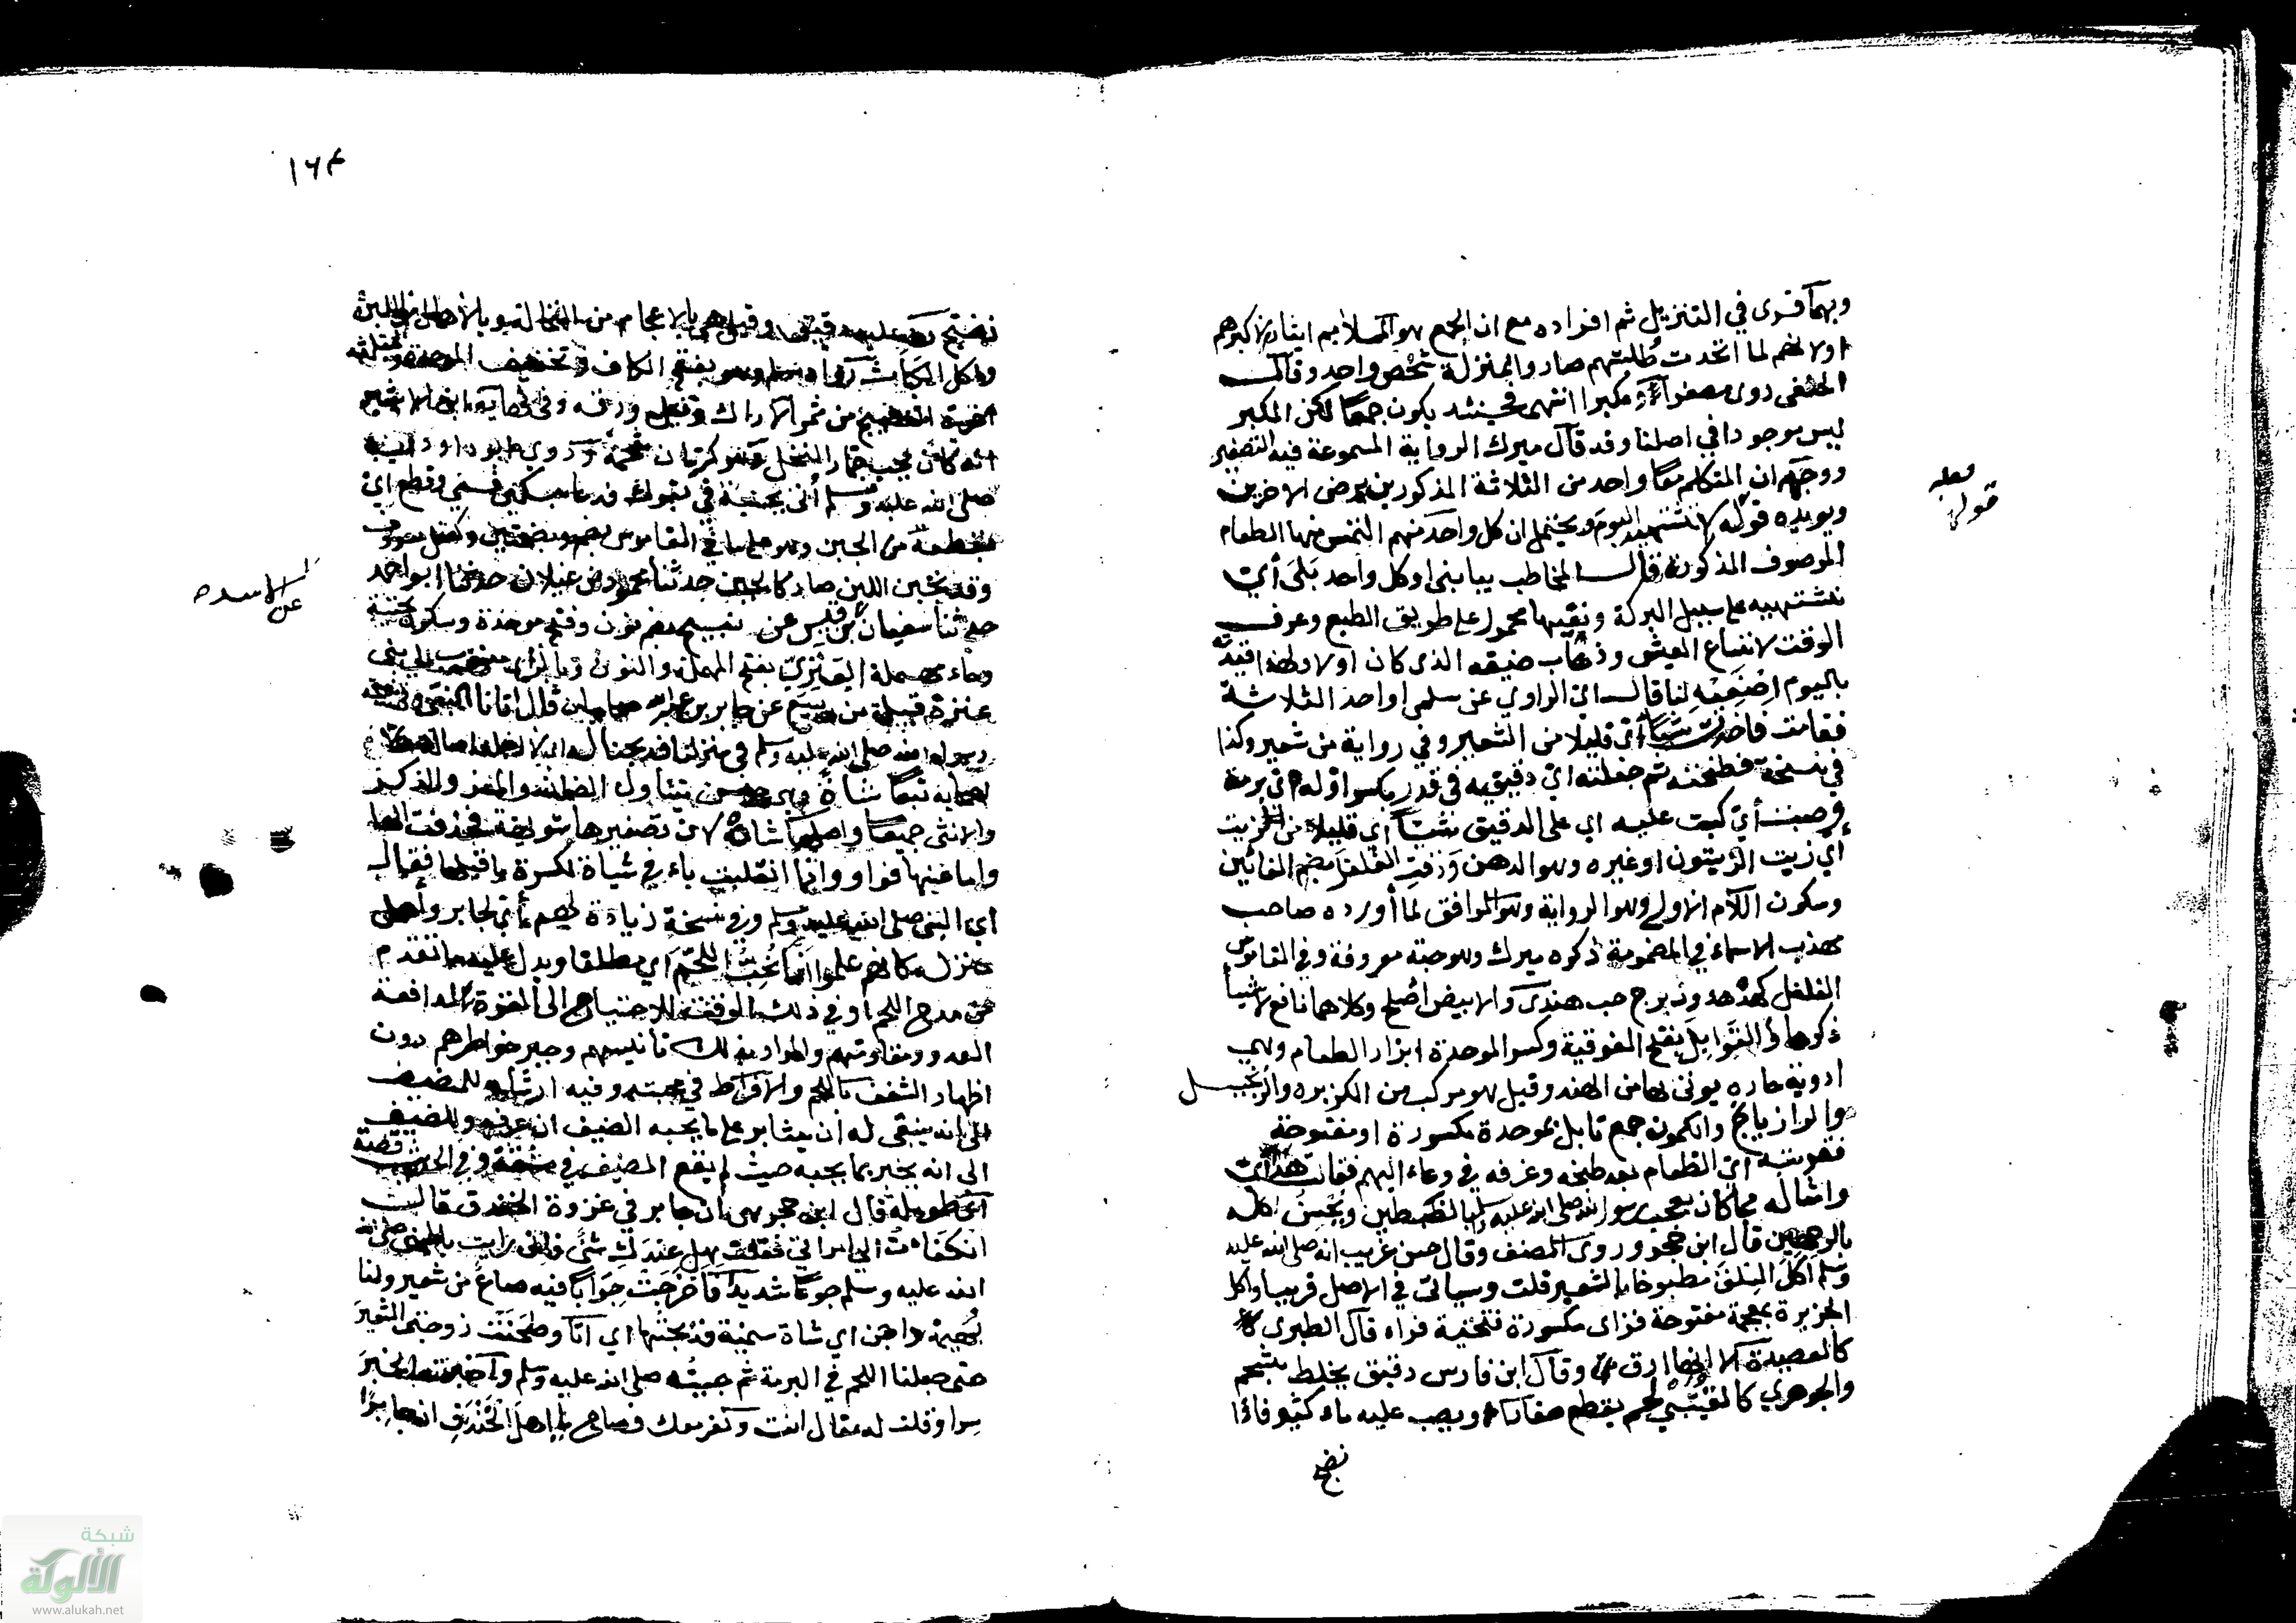 وبهما قرئ في التنزيل ثم افراده مع ان الجمع هو الملايم ايثار لاكبرهم
اولانهم لما اتحدت طلبتهم صاروا بمنزلة شخص واحد وقال
الحنفي روى مصغرا ومكبرا انتهى فحينئذ يكون جمعا لكن المكبر
ليس موجودا في اصلنا وقد قال ميرك الرواية المسموعة فيه التصغير
ووجهه ان المتكلم معها واحد من الثلاثة المذكورين برضى الاخرين
ويويده قوله لا تشتهيه اليوم ويحتمل ان كل واحد منهم التمس منها الطعام
الموصوف المذكورة قال المخاطب يا بني او كل واحد بلى أي
نشتهيه على سبيل البركة ونفيها محمول على طريق الطبع وعرف
الوقت لاتساع العيش وذهاب ضيقه الذي كان اولا ولهذا قيدته
باليوم اصنعيه لنا قال اي الراوي عن سلمى او احد الثلاثة
فقامت فاخذت شيئا أي قليلا من الشعير وفي رواية من شعير وكذا
في نسخة فطحنته ثم جعلته اي دقيقه في قدر بكسر اوله اي برمة
وصبت أي كبت عليه اي على الدقيق شيئا أي قليلا من الزيت
أي زيت الزيتون او غيره وهو الدهن ودقت الفلفل بضم الفائين
وسكون اللام الاولى وهو الرواية وهو الموافق لما أورده صاحب
مهذب الاسماء في المضمومة ذكره ميرك وهو حبة معروفة وفي القاموس
الفلفل كهدهد وزبرج حب هندي والابيض أصلح وكلاهما نافع لاشيا
ذكرها والتوابل بفتح الفوقية وكسر الموحدة ابزار الطعام وهي
ادوية حارة يوتى بها من الهند وقيل هو مركب من الكزبرة والزنجبيل
والرازيانج والكمون جمع تابل بموحدة مكسورة او مفتوحة
فقربته اي الطعام بعد طبخه وغرفه في وعاء اليهم فقالت هذا
وامثاله مما كان يعجب رسول الله صلى الله عليه وسلم ويحسن اكله
بالوجهين قال ابن حجر وروى المصنف وقال حسن غريب انه صلى الله عليه
وسلم اكل السلق مطبوخا بالشعير قلت وسياتي في الاصل قريبا واكل
الخزيرة بمعجمة مفتوحة فزاي مكسورة فتحتية فراء قال الطبري
كالعصيدة الا انها ارق وقال ابن فارس دقيق يخلط بشحم
والجوهري كالقتيبي لحم يقطع صغارا ويصب عليه ماء كثير فاذا
نضج
قولها
١٦٤
وقيل هي بالاعجام من النخالة وبالاهمال من اللبن
واكل الكباث رواه مسلم وهو بفتح الكاف وتخفيف الموحدة
النضيج من ثمر الاراك وقيل ورقه وفي نهاية ابن الاثير
انه كان يحب جمار النخل وهو كرمان شحمه وروى ابو داود انه
صلى الله عليه وسلم أتي بجبنة في تبوك فدعا بسكين فسمى وقطع اي
قطعة من الجبن وهو على ما في القاموس بضم وبضمتين وكعتل معروف
وقد تجبن اللبن صار كالجبن حدثنا محمود بن غيلان حدثنا ابو احمد
حدثنا سفيان عن نبيح بضم نون وفتح موحدة وسكون تحتية
وحاء مهملة العنزي بفتح المهملة والنون وبالزاي منسوب الى بني
عنزة قبيلة من ربيع عن جابر بن عبد الله قال اتانا النبي
رسول الله صلى الله عليه وسلم في منزلنا فذبحنا له
شاة وهي جنس يتناول الضان والمعز والذكر
والانثى جميعا واصلها شاهة لان تصغيرها شويهة فحذفت الهاء
واما عينها فواو وانما انقلبت ياء في شياه لكسرة ما قبلها فقال
اي النبي صلى الله عليه وسلم وفي نسخة زيادة لهم اي لجابر وأهل
منزله كانهم علموا انا نحب اللحم اي مطلقا ويدل عليه ما تقدم
من مدح اللحم او في ذلك الوقت للاحتياج الى القوة لمدافعة
العدو ومقاومتهم والمراد بذلك تانيسهم وجبر خواطرهم دون
اظهار الشغف باللحم والافراط في محبته وفيه ارشاد للمضيف
الى انه ينبغي له ان يثابر على ما يحبه الضيف ان عرفه وللضيف
الى انه يخبر بما يحبه حيث لم يقع المضيف في مشقة وفي الحديث قصة
أي طويلة قال ابن حجر هي ان جابر في غزوة الخندق قال
انكفات الى امراتي فقلت هل عندك شئ فاني رايت بالنبي صلى الله
الله عليه وسلم جوعا شديدا فاخرجت جرابا فيه صاع من شعير ولنا
بهيمة داجن اي شاة سمينة فذبحتها اي انا وطحنت زوجتي الشعير
حتى جعلنا اللحم في البرمة ثم جئته صلى الله عليه وسلم واخبرته الخبر
سرا وقلت له تعال انت ونفر معك فصاح يا اهل الخندق ان جابرا
عن الاسود
شبكة
الألوكة
www.alukah.net